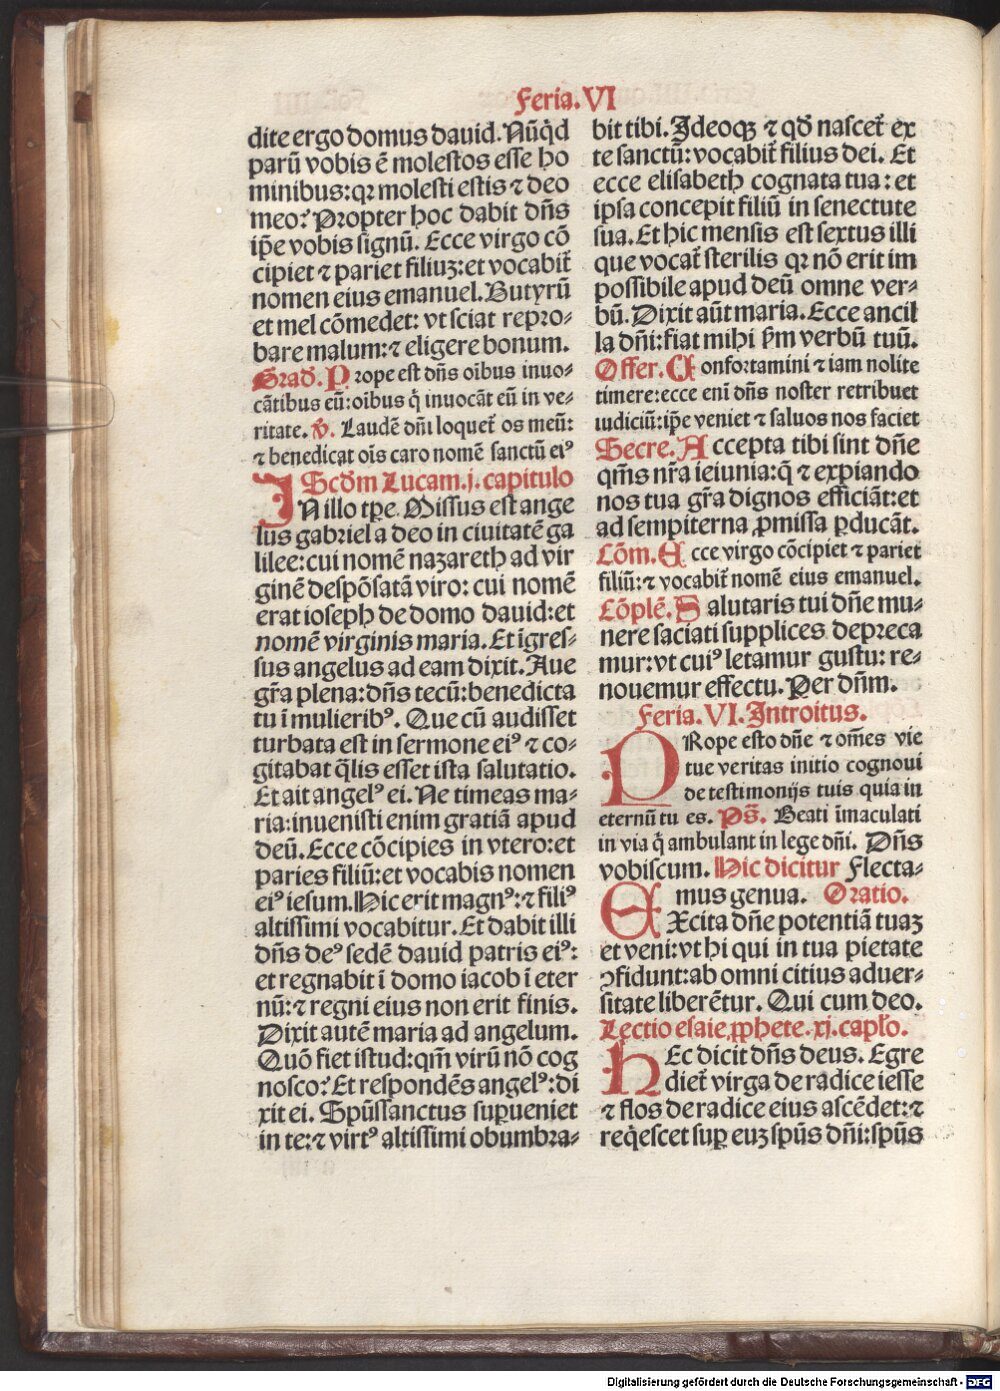 Feria. VI
dite ergo domus dauid. Nūq̇d
parū vobis ē molestos esse ho
minibus: qꝛ molesti estis ⁊ deo
meo? Propter hoc dabit dn̄s
ip̄e vobis signū. Ecce virgo cō
cipiet ⁊ pariet filiuꝫ: et vocabit̄
nomen eius emanuel. Butyrū
et mel cōmedet: vt sciat repro⸗
bare malum: ⁊ eligere bonum.
Grad̄. Prope est dn̄s oībus inuo⸗
cātibus eū: oībus q̇ inuocāt eū in ve⸗
ritate. v̄. Laudē dn̄i loquet̄ os meū:
⁊ benedicat oīs caro nomē sanctū eiꝰ
Scd̄m Lucam. j. capitulo
IN illo tp̄e. Missus est ange
lus gabriel a deo in ciuitatē ga
lilee: cui nomē nazareth ad vir
ginē despōsatā viro: cui nomē
erat ioseph de domo dauid: et
nomē virginis maria. Et īgres⸗
sus angelus ad eam dixit. Aue
gr̄a plena: dn̄s tecū: benedicta
tu ī mulieribꝰ. Que cū audisset
turbata est in sermone eiꝰ ⁊ co⸗
gitabat q̄lis esset ista salutatio.
Et ait angelꝰ ei. Ne timeas ma⸗
ria: inuenisti enim gratiā apud
deū. Ecce cōcipies in vtero: et
paries filiū: et vocabis nomen
eiꝰ iesum. Hic erit magnꝰ: ⁊ filiꝰ
altissimi vocabitur. Et dabit illi
dn̄s deꝰ sedē dauid patris eiꝰ:
et regnabit ī domo iacob ī eter
nū: ⁊ regni eius non erit finis.
Dixit autē maria ad angelum.
Quō fiet istud: qm̄ virū nō cog
nosco? Et respondēs angelꝰ: di
xit ei. Spūssanctus suꝑueniet
in te: ⁊ virtꝰ altissimi obumbra⸗
bit tibi. Ideoqꝫ ⁊ qd̄ nascet̄ ex
te sanctū: vocabit̄ filius dei. Et
ecce elisabeth cognata tua: et
ipsa concepit filiū in senectute
sua. Et hic mensis est sextus illi
que vocat̄ sterilis qꝛ nō erit im
possibile apud deū omne ver⸗
bū. Dixit aūt maria. Ecce ancil
la dn̄i: fiat mihi ẜm verbū tuū.
Offer. Confortamini ⁊ iam nolite
timere: ecce enī dn̄s noster retribuet
iudiciū: ip̄e veniet ⁊ saluos nos faciet
Secre. Accepta tibi sint dn̄e
qm̄s nr̄a ieiunia: q̄ ⁊ expiando
nos tua gr̄a dignos efficiāt: et
ad sempiterna ꝓmissa ꝑducāt.
Cōm. Ecce virgo cōcipiet ⁊ pariet
filiū: ⁊ vocabit̄ nomē eius emanuel.
Cōplē. Salutaris tui dn̄e mu⸗
nere saciati supplices depreca
mur: vt cuiꝰ letamur gustu: re⸗
nouemur effectu. Per dn̄m.
Feria. VI. Introitus.
PRope esto dn̄e ⁊ om̄es vie
tue veritas initio cognoui
de testimonijs tuis quia in
eternū tu es. Ps̄. Beati īmaculati
in via q̇ ambulant in lege dn̄i. Dn̄s
vobiscum. Hic dicitur Flecta⸗
mus genua. Oratio.
EXcita dn̄e potentiā tuaꝫ
et veni: vt hi qui in tua pietate
ꝯfidunt: ab omni citius aduer⸗
sitate liberētur. Qui cum deo.
Lectio esaie ꝓphete. xj. capl̄o.
HEc dicit dn̄s deus. Egre
diet̄ virga de radice iesse
⁊ flos de radice eius ascēdet: ⁊
req̇escet suꝑ euꝫ spūs dn̄i: spūs
Digitalisierung gefördert durch die Deutsche Forschungsgemeinschaft - DFG